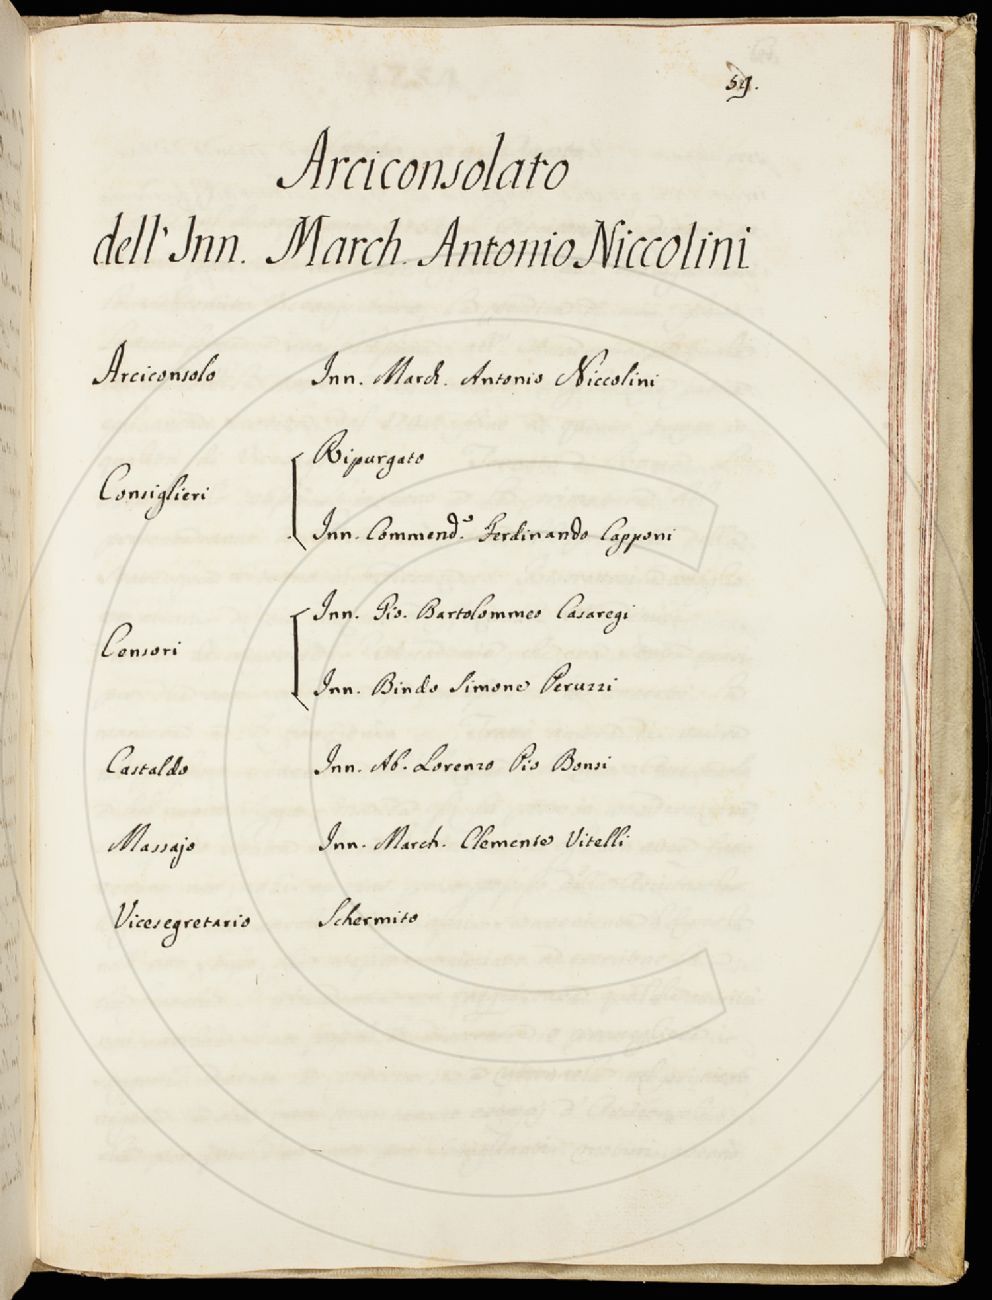 59.
Arciconsolato
dell' Inn. March. Antonio Niccolini
Arciconsolo Inn. March. Antonio Niccolini
Consiglieri
Ripurgato
Inn. Commend.e Ferdinando Capponi
Censori
Inn. Gio. Bartolommeo Casaregi
Inn. Bindo Simone Peruzzi
Castaldo Inn. Ab. Lorenzo Pio Bonsi
Massajo Inn. March. Clemente Vitelli
Vicesegretario Schermito